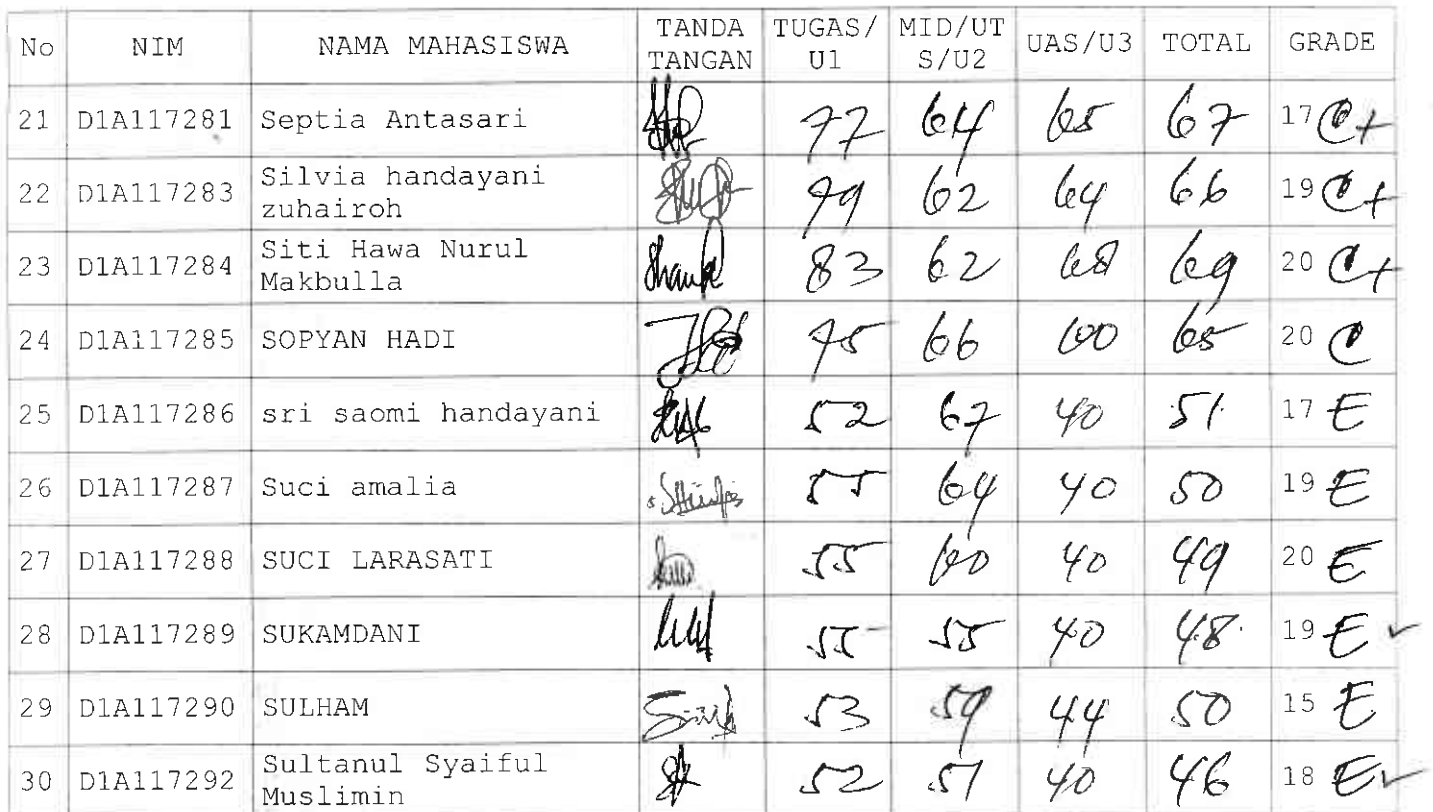 No NIM NAMA MAHASISWA TANDA TANGAN TUGAS/U1 MID/UTS/U2 UAS/U3 TOTAL GRADE
21 D1A117281 Septia Antasari 77 64 65 67 17 C+
22 D1A117283 Silvia handayani zuhairoh 79 62 64 66 19 C+
23 D1A117284 Siti Hawa Nurul Makbulla 83 62 68 69 20 C+
24 D1A117285 SOPYAN HADI 75 66 60 65 20 C
25 D1A117286 sri saomi handayani 52 67 40 51 17 E
26 D1A117287 Suci amalia 55 64 40 50 19 E
27 D1A117288 SUCI LARASATI 55 60 40 49 20 E
28 D1A117289 SUKAMDANI 55 55 40 48 19 E ✓
29 D1A117290 SULHAM 53 59 44 50 15 E
30 D1A117292 Sultanul Syaiful Muslimin 52 51 40 46 18 E ✓